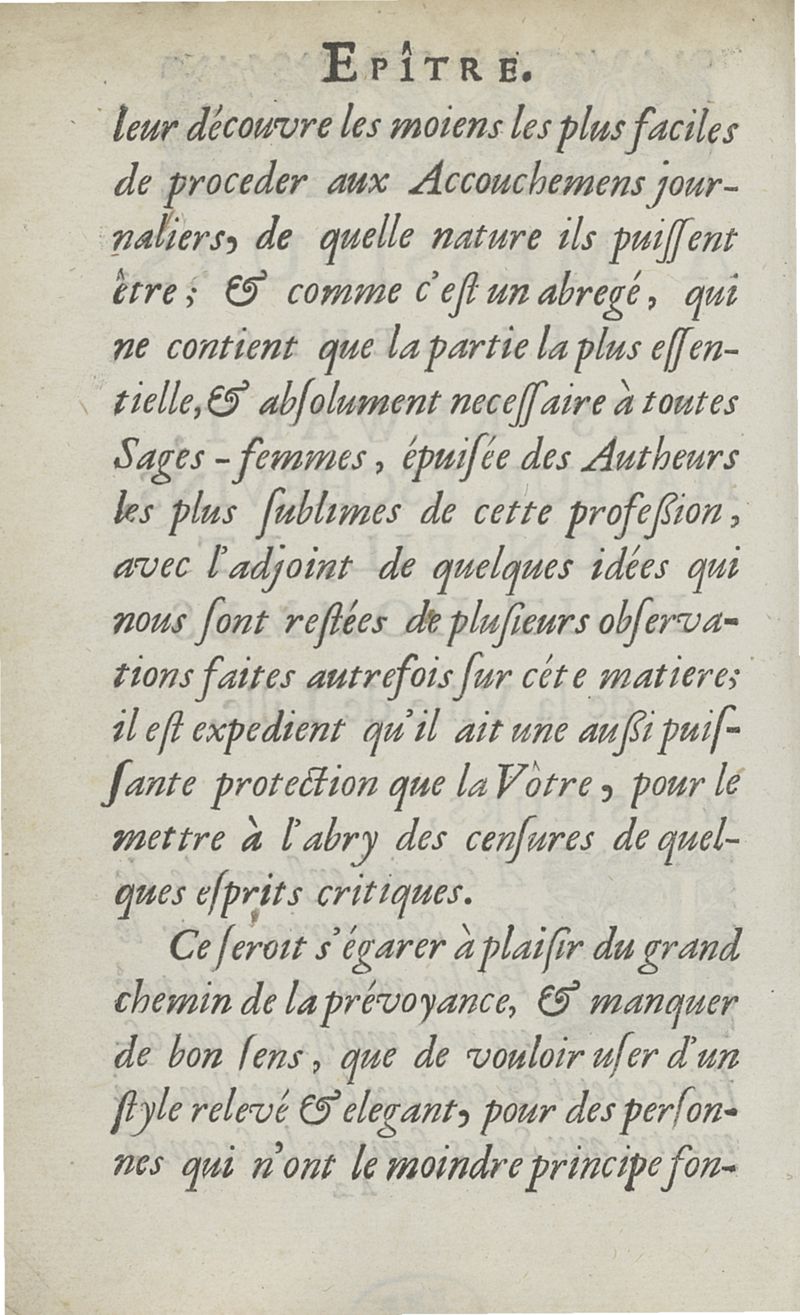 EPÎTRE.
leur découvre les moiens les plus faciles
de proceder aux Accouchemens jour-
naliers, de quelle nature ils puiſſent
être; & comme c'eſt un abregé, qui
ne contient que la partie la plus eſſen-
tielle, & abſolument neceſſaire à toutes
Sages-femmes, épuiſée des Autheurs
les plus ſublimes de cette profeßion,
avec l'adjoint de quelques idées qui
nous ſont reſtées de pluſieurs obſerva-
tions faites autrefois ſur céte matiere;
il eſt expedient qu'il ait une außi puiſ-
ſante protection que la Vòtre, pour le
mettre à l'abry des cenſures de quel-
ques eſprits critiques.
Ce ſeroit s'égarer à plaiſir du grand
chemin de la prévoyance, & manquer
de bon ſens, que de vouloir uſer d'un
ſtyle relevé & elegant, pour des perſon-
nes qui n'ont le moindre principe fon-